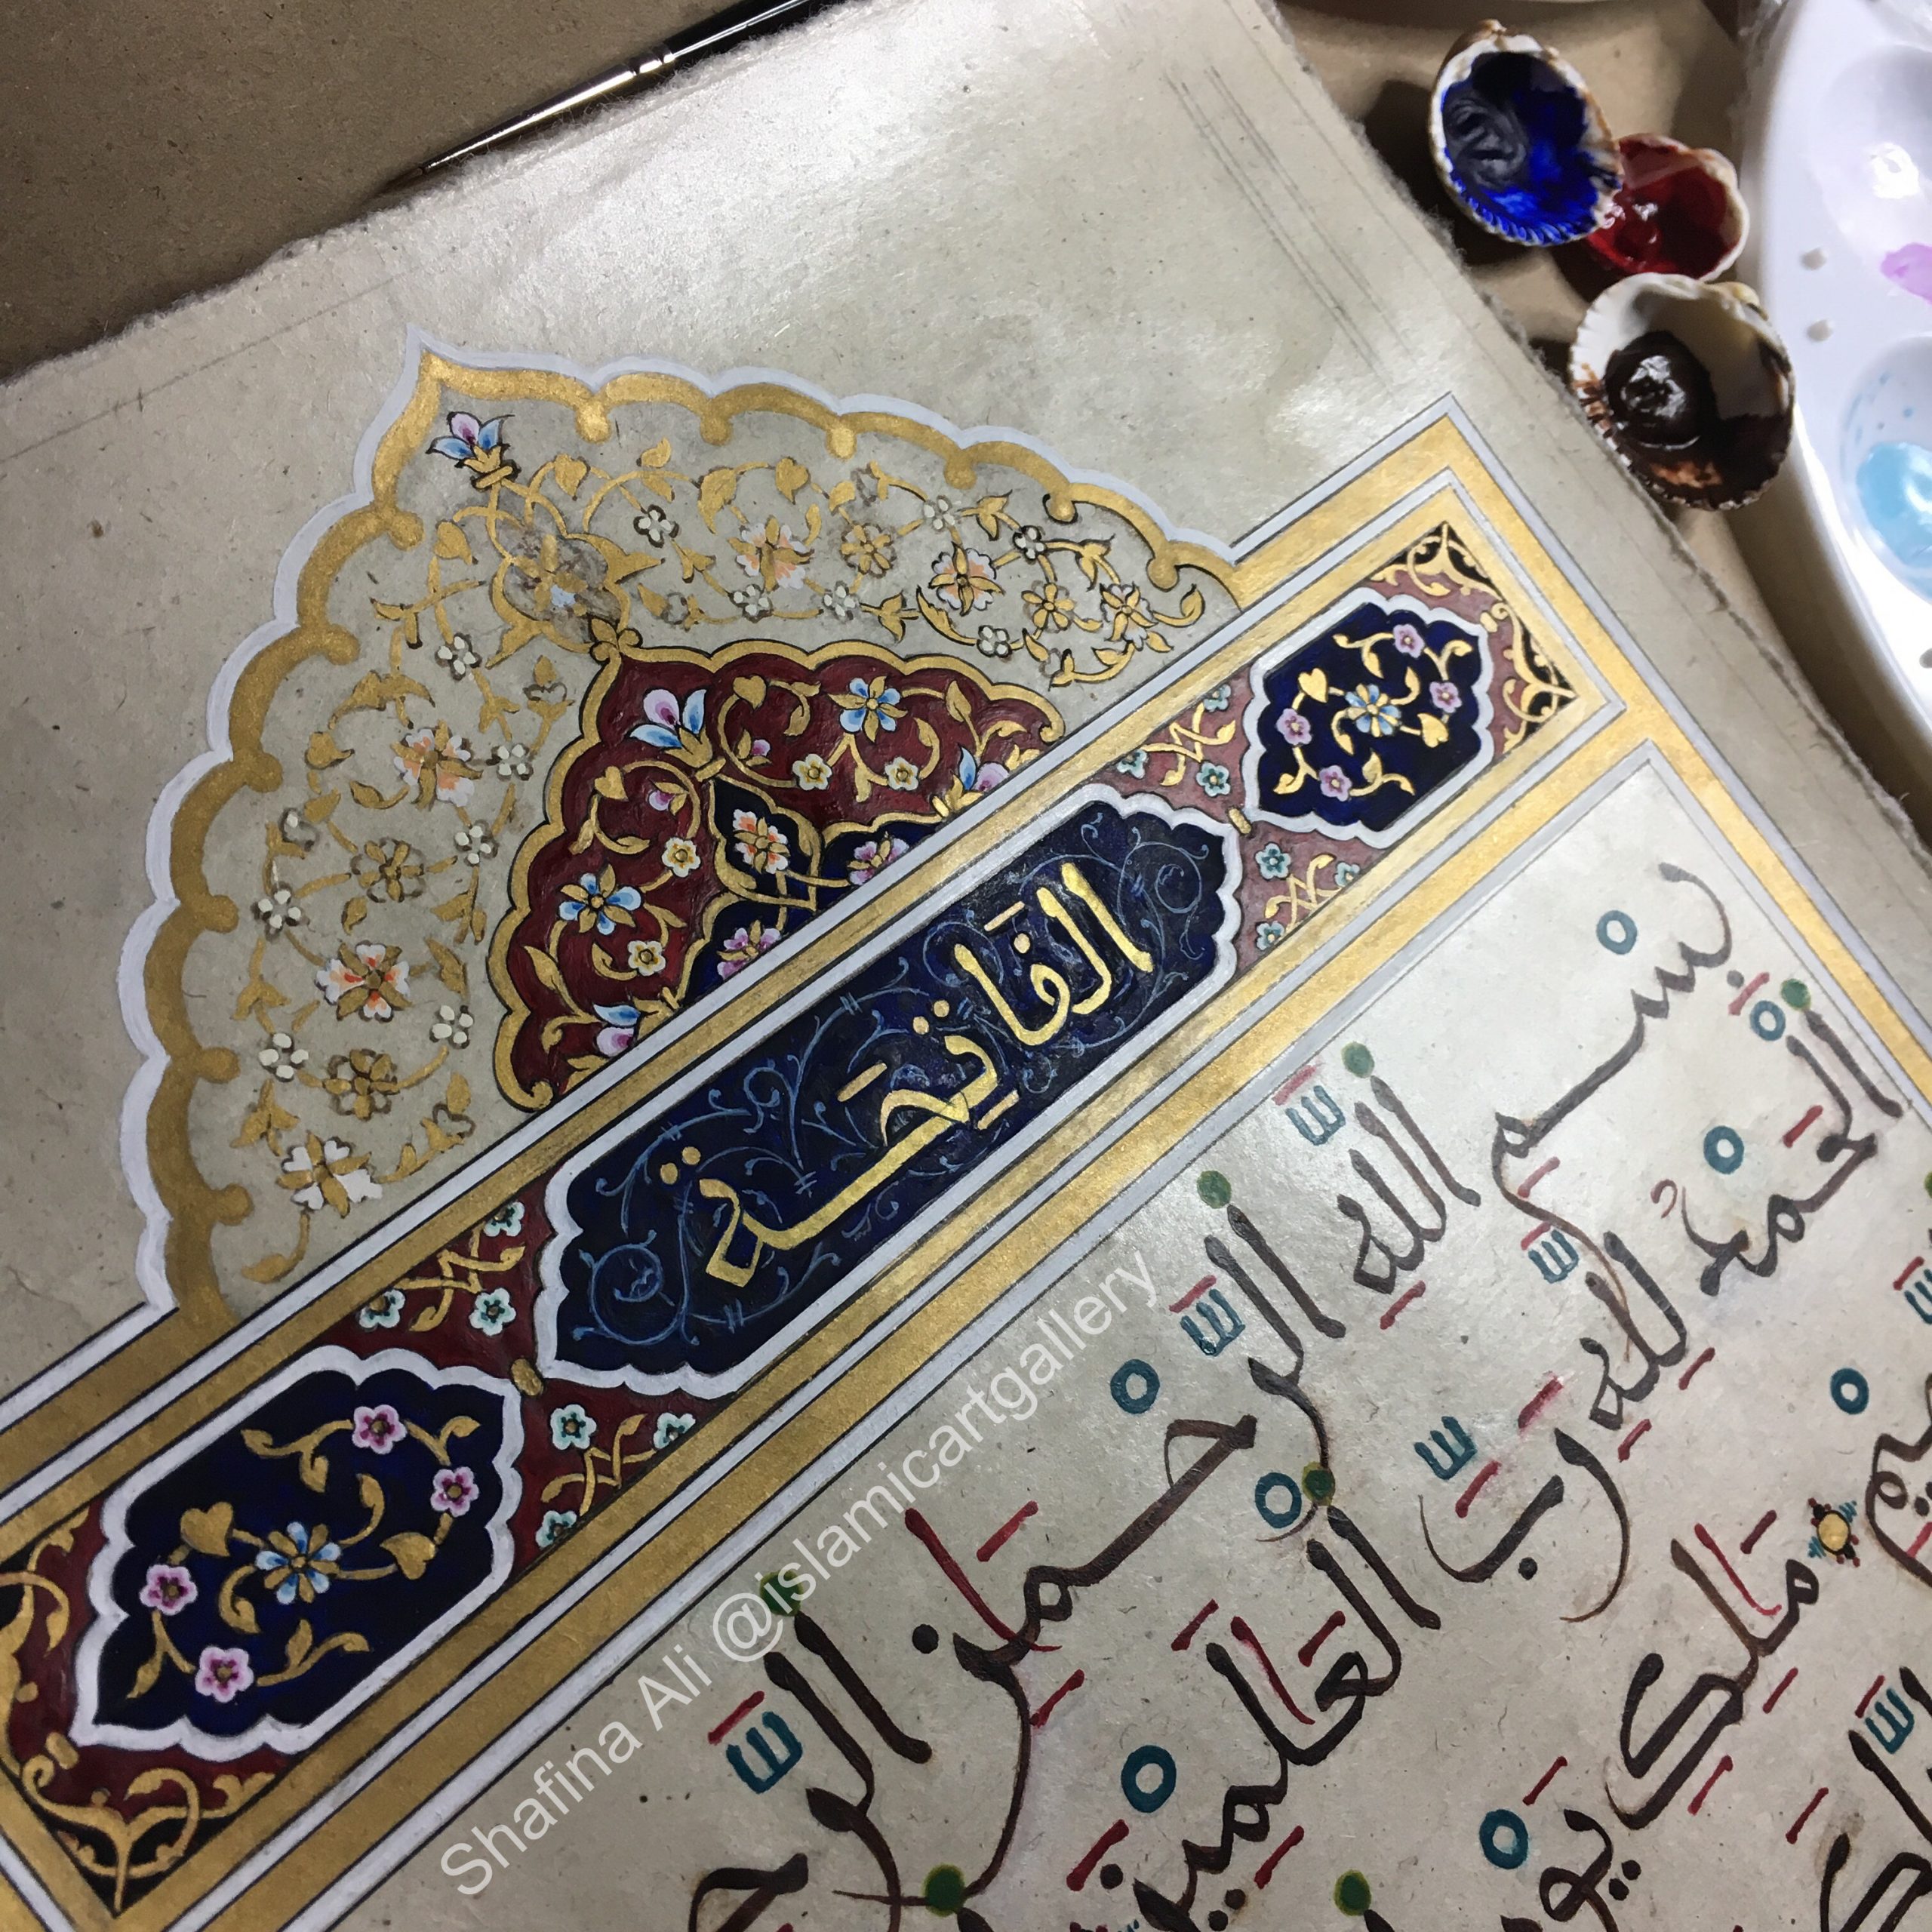 الفَاتِحَة
بِسْمِ اللَّهِ الرَّحْمَٰنِ الرَّحـ
الْحَمْدُ لِلَّهِ رَبِّ الْعَٰلَمِينَ
ـيمِ مَلِكِ يَوْ
Shafina Ali @islamicartgallery